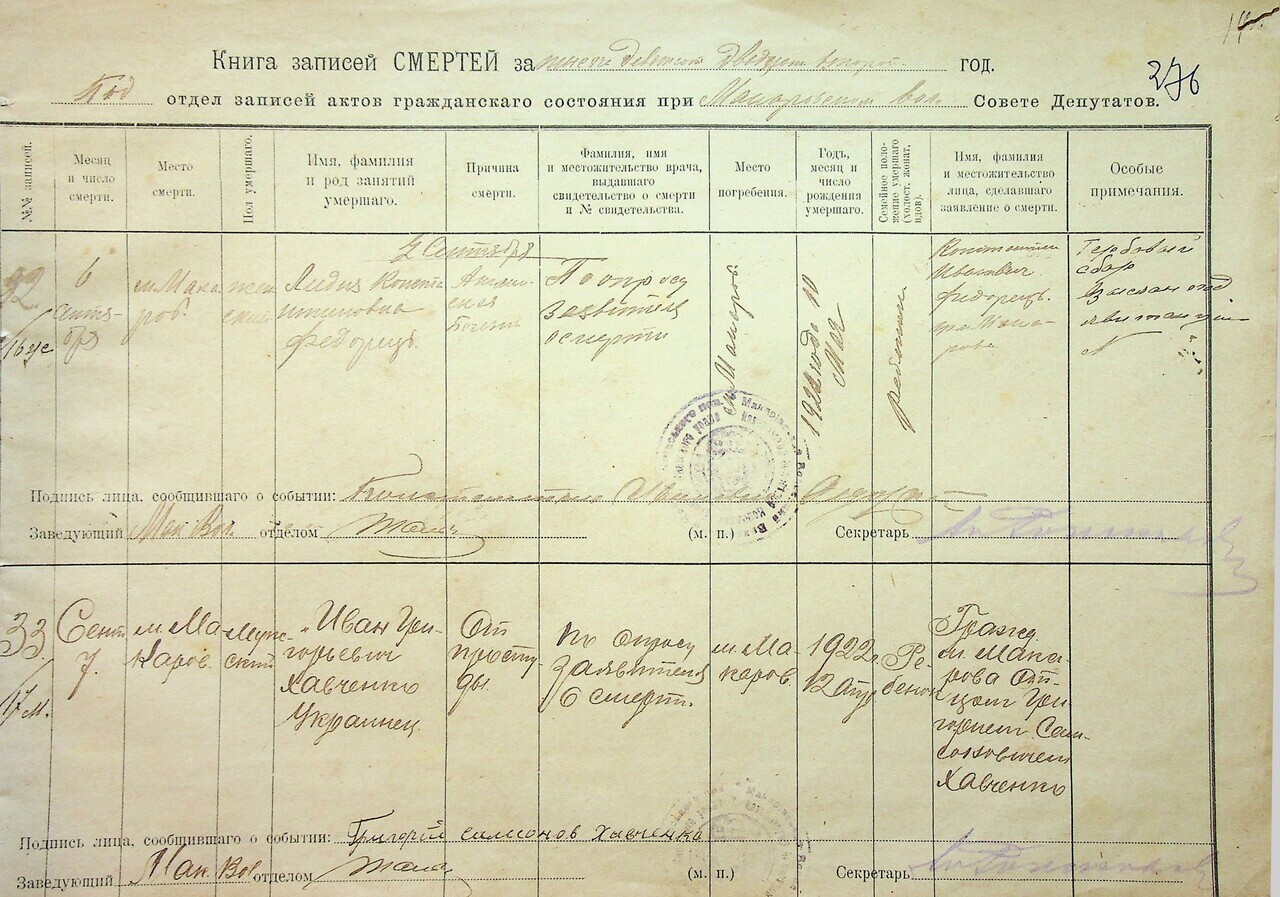 276
Книга записей СМЕРТЕЙ за тысяча девятсот двадцать второй год.
Под отдел записей актов гражданского состояния при Макаровском вол. Совете Депутатов.
№№ записей.
Месяц и число смерти.
Место смерти.
Пол умершаго.
Имя, фамилия и род занятий умершаго.
Причина смерти.
Фамилия, имя и местожительство врача, выдавшаго свидетельство о смерти и № свидетельства.
Место погребения.
Годъ, месяц и число рождения умершаго.
Семейное положение умершаго (холост. женат, вдов).
Имя, фамилия и местожительство лица, сделавшаго заявление о смерти.
Особые примечания.
Сентября
6
Сентя-
бря
м. Мака
ров.
жен
ский
Лидия Конста
нтиновна
Федорец.
Болезнь
По опросу
заявителя
о смерти
м. Макаров.
1922 года 10
Мая
ребенок
Константин
Иванович
Федорец.
м. Мака-
рова
Гербовый
сбор
взыскан под
№
Подпись лица, сообщившаго о событии: Константин Иванович Федорец
Заведующий Мак Вол. отделом
(м. п.)
Секретарь
33
17 м.
Сент
7.
м. Ма
каров.
Муж-
ский
Иван Гри-
горьевич
Хавченко
Украинец.
От
просту-
ды.
По опросу
Заявителя
О смерт.
м. Ма-
каров.
1922 г.
12 Апр
Ре-
бенок
Гражд.
м. Мака-
рова От-
цом Гри-
горием Сам-
соновичем
Хавченко
Подпись лица, сообщившаго о событии: Григорий Хавченко
Заведующий Мак Вол отделом
(м. п.)
Секретарь